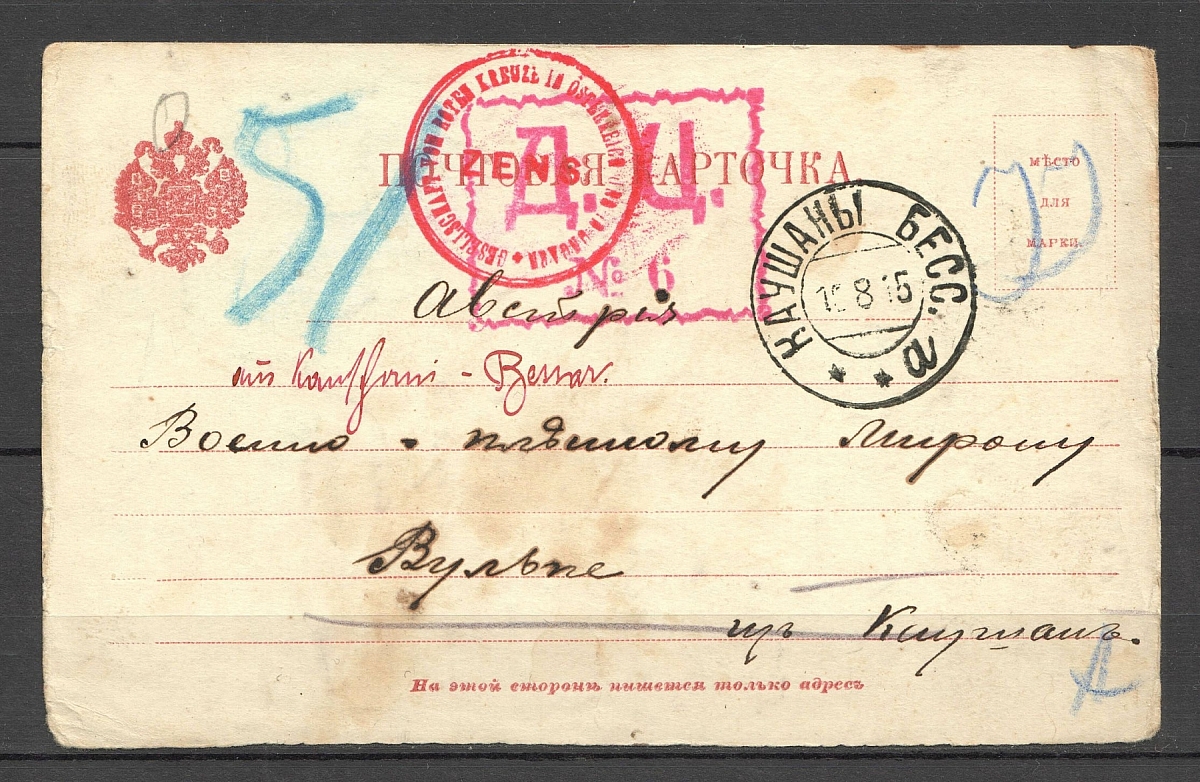 ПОЧТОВАЯ КАРТОЧКА.
GESELLSCHAFT VOM ROTEN KREUZE IN ÖSTERREICH
ZENS.
Д. Ц.
№ 6
МѢСТО
ДЛЯ
МАРКИ.
КАУШАНЫ БЕСС.
8 15
а
51
Австрія
aus Kauschani - Bessar.
Военно - плѣнному Мирону
Вульпе
изъ Каушанъ.
На этой сторонѣ пишется только адресъ